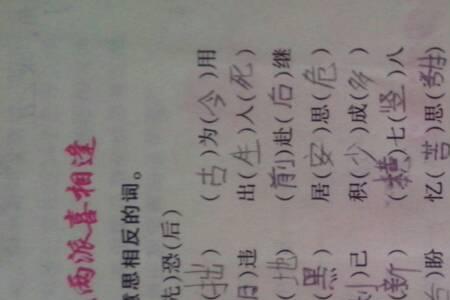 两派喜相逢
意思相反的词。
)恐(后)
(拙) (古)为(今)用
违 出(生)入(死)
(地) (前)赴(后)继
(黑) 居(安)思(危)
)己 积(少)成(多)
(新) (横)七(竖)八
)盼 忆(苦)思(甜)